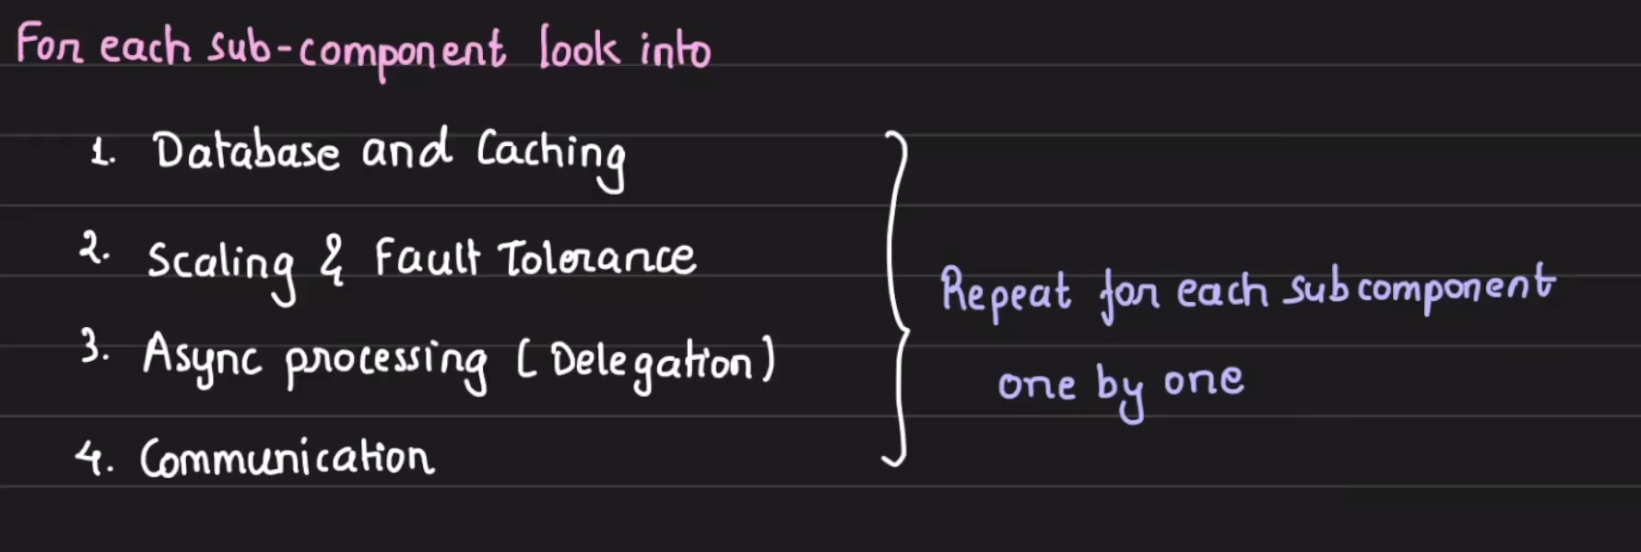 For each sub-component look into
1. Database and Caching
2. Scaling & Fault Tolerance
3. Async processing (Delegation)
4. Communication
Repeat for each subcomponent
one by one